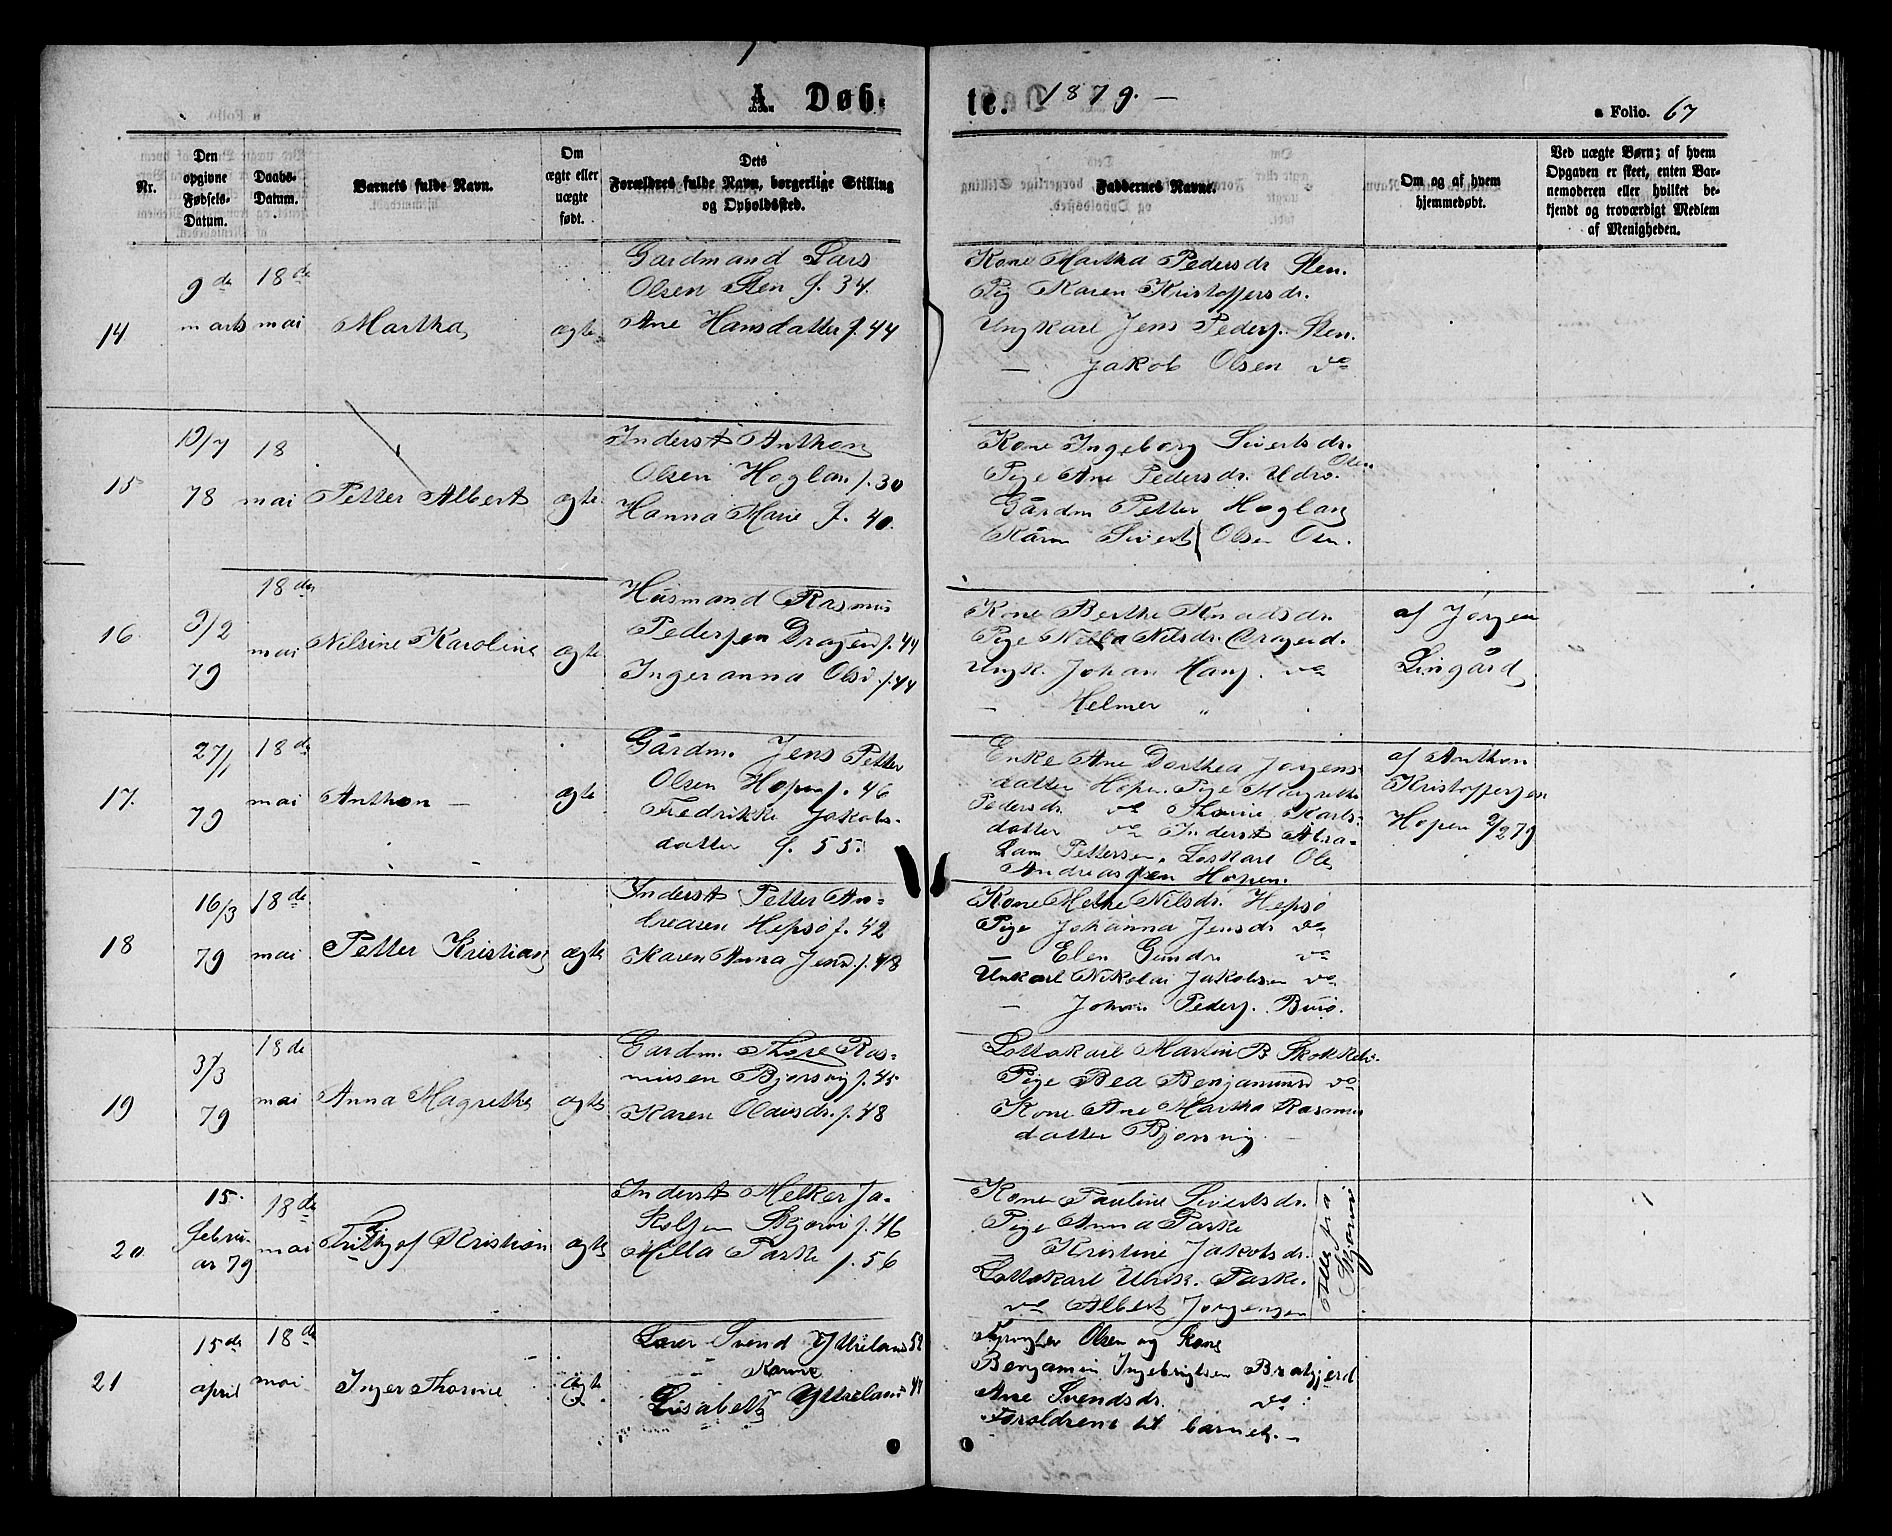 A. Døb-
te. 1879. —
a Folio. 67
Nr.
Den
opgivne
Fødsels-
Datum.
Daabs-
Datum.
Barnets fulde Navn.
Om
ægte eller
uægte
født.
Dets
Forældres fulde Navn, borgerlige Stilling
og Opholdssted.
Faddernes Navne.
Om og af hvem
hjemmedøbt.
Ved uægte Børn; af hvem
Opgaven er skeet, enten Bar-
nemoderen eller hvilket be-
kjendt og troværdigt Medlem
af Menigheden.
14
9de
marts
18de
mai
Martha
ægte
Gårdmand Lars
Olsen Sten f. 34.
Ane Hansdatter f. 44
Kone Martha Pedersdr Sten.
Pig Karen Kristoffersdr.
Ungkarl Jens Peders. Sten.
— Jakob Olsen do
15
/7
78
18
mai
Petter Albert
ægte
Inderst Anthon
Olsen Hoglan f. 30
Hanna Marie f. 40.
Kone Ingeborg Sivertsdr.
Osen
Pige Ane Pedersdr. Udrø.
Gårdm Petter Hoglan
Sivert Olsen Osn.
16
3/2
79
18de
mai
Nilsine Karoline
ægte
Husmand Rasmus
Pedersen Drageid f. 44
Ingeranna Olsd. f. 44
Kone Berthe Knudsdr.
Pige Nilsdr. Drageid.
Ungk. Johan Hans. do
— Helmer „
af Jørgen
Lingård
17.
27/1
79
18de
mai
Anthon —
ægte
Gårdm. Jens Petter
Olsen Hopen f. 46
Fredrikke Jakobs-
datter f. 55.
Enke Ane Dorthea Jørgens-
datter Hopen. Pige Margrethe
Pedersdr. do Thorine Karls-
datter do Inderst Abra-
ham Pettersen. Løskarl Ole
Andreassen Hopen.
af Anthon
Kristoffersen
Hopen 2/2 79
18
16/3
79
18de
mai
Petter Kristian
ægte
Inderst Petter An-
dreasen Hepsø f. 42
Karen Anna Jensd. f. 48
Kone Nilsdr. Hepsø
Pige Johanna Jensdr do
— Elen do
Unkarl Nikolai Jakobsen do
— Johan Peders. Burø.
19
3/3
79
18de
mai
Anna Magrethe
ægte
Gardm. Thore Ras-
musen Bjørsvig f. 45
Karen Olausdr. f. 48
Lottakarl Martin B.
Pige Bea Benjaminsd do
Kone Ane Martha Rasmus
datter Bjørsvig.
20
15.
februar
ar 79
18de
mai
Frithjof Kristian
ægte
Inderst Melker Ja-
kobsen Skjærvi f. 46
Milla Parke f. 56
Kone Pauline Sivertsdr.
Pige Anna Parke
— Kristine Jakobsdr.
Lottakarl Ulrik. Parke.
do Albert Jørgensen
Alle fra
Skjærvi
21
15de
april
18de
mai
Inger Thorine
ægte
Lærer Svend Ytreland 52
Kone
Lisabeth Ytreland 41
Olsen og Kone
Benjamin Ingebrigtsen Bratjerd
Ane Svendsdr. do
Foreldrene til barnet. —